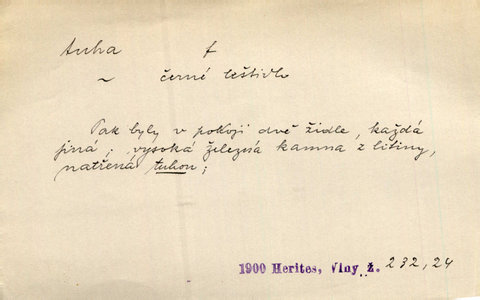 tuha f
~ černé leštidlo
Pak byly v pokoji dvě židle, každá
jiná; vysoká železná kamna z litiny,
natřená tuhou;
1900 Herites, Vlny ž. 232,24